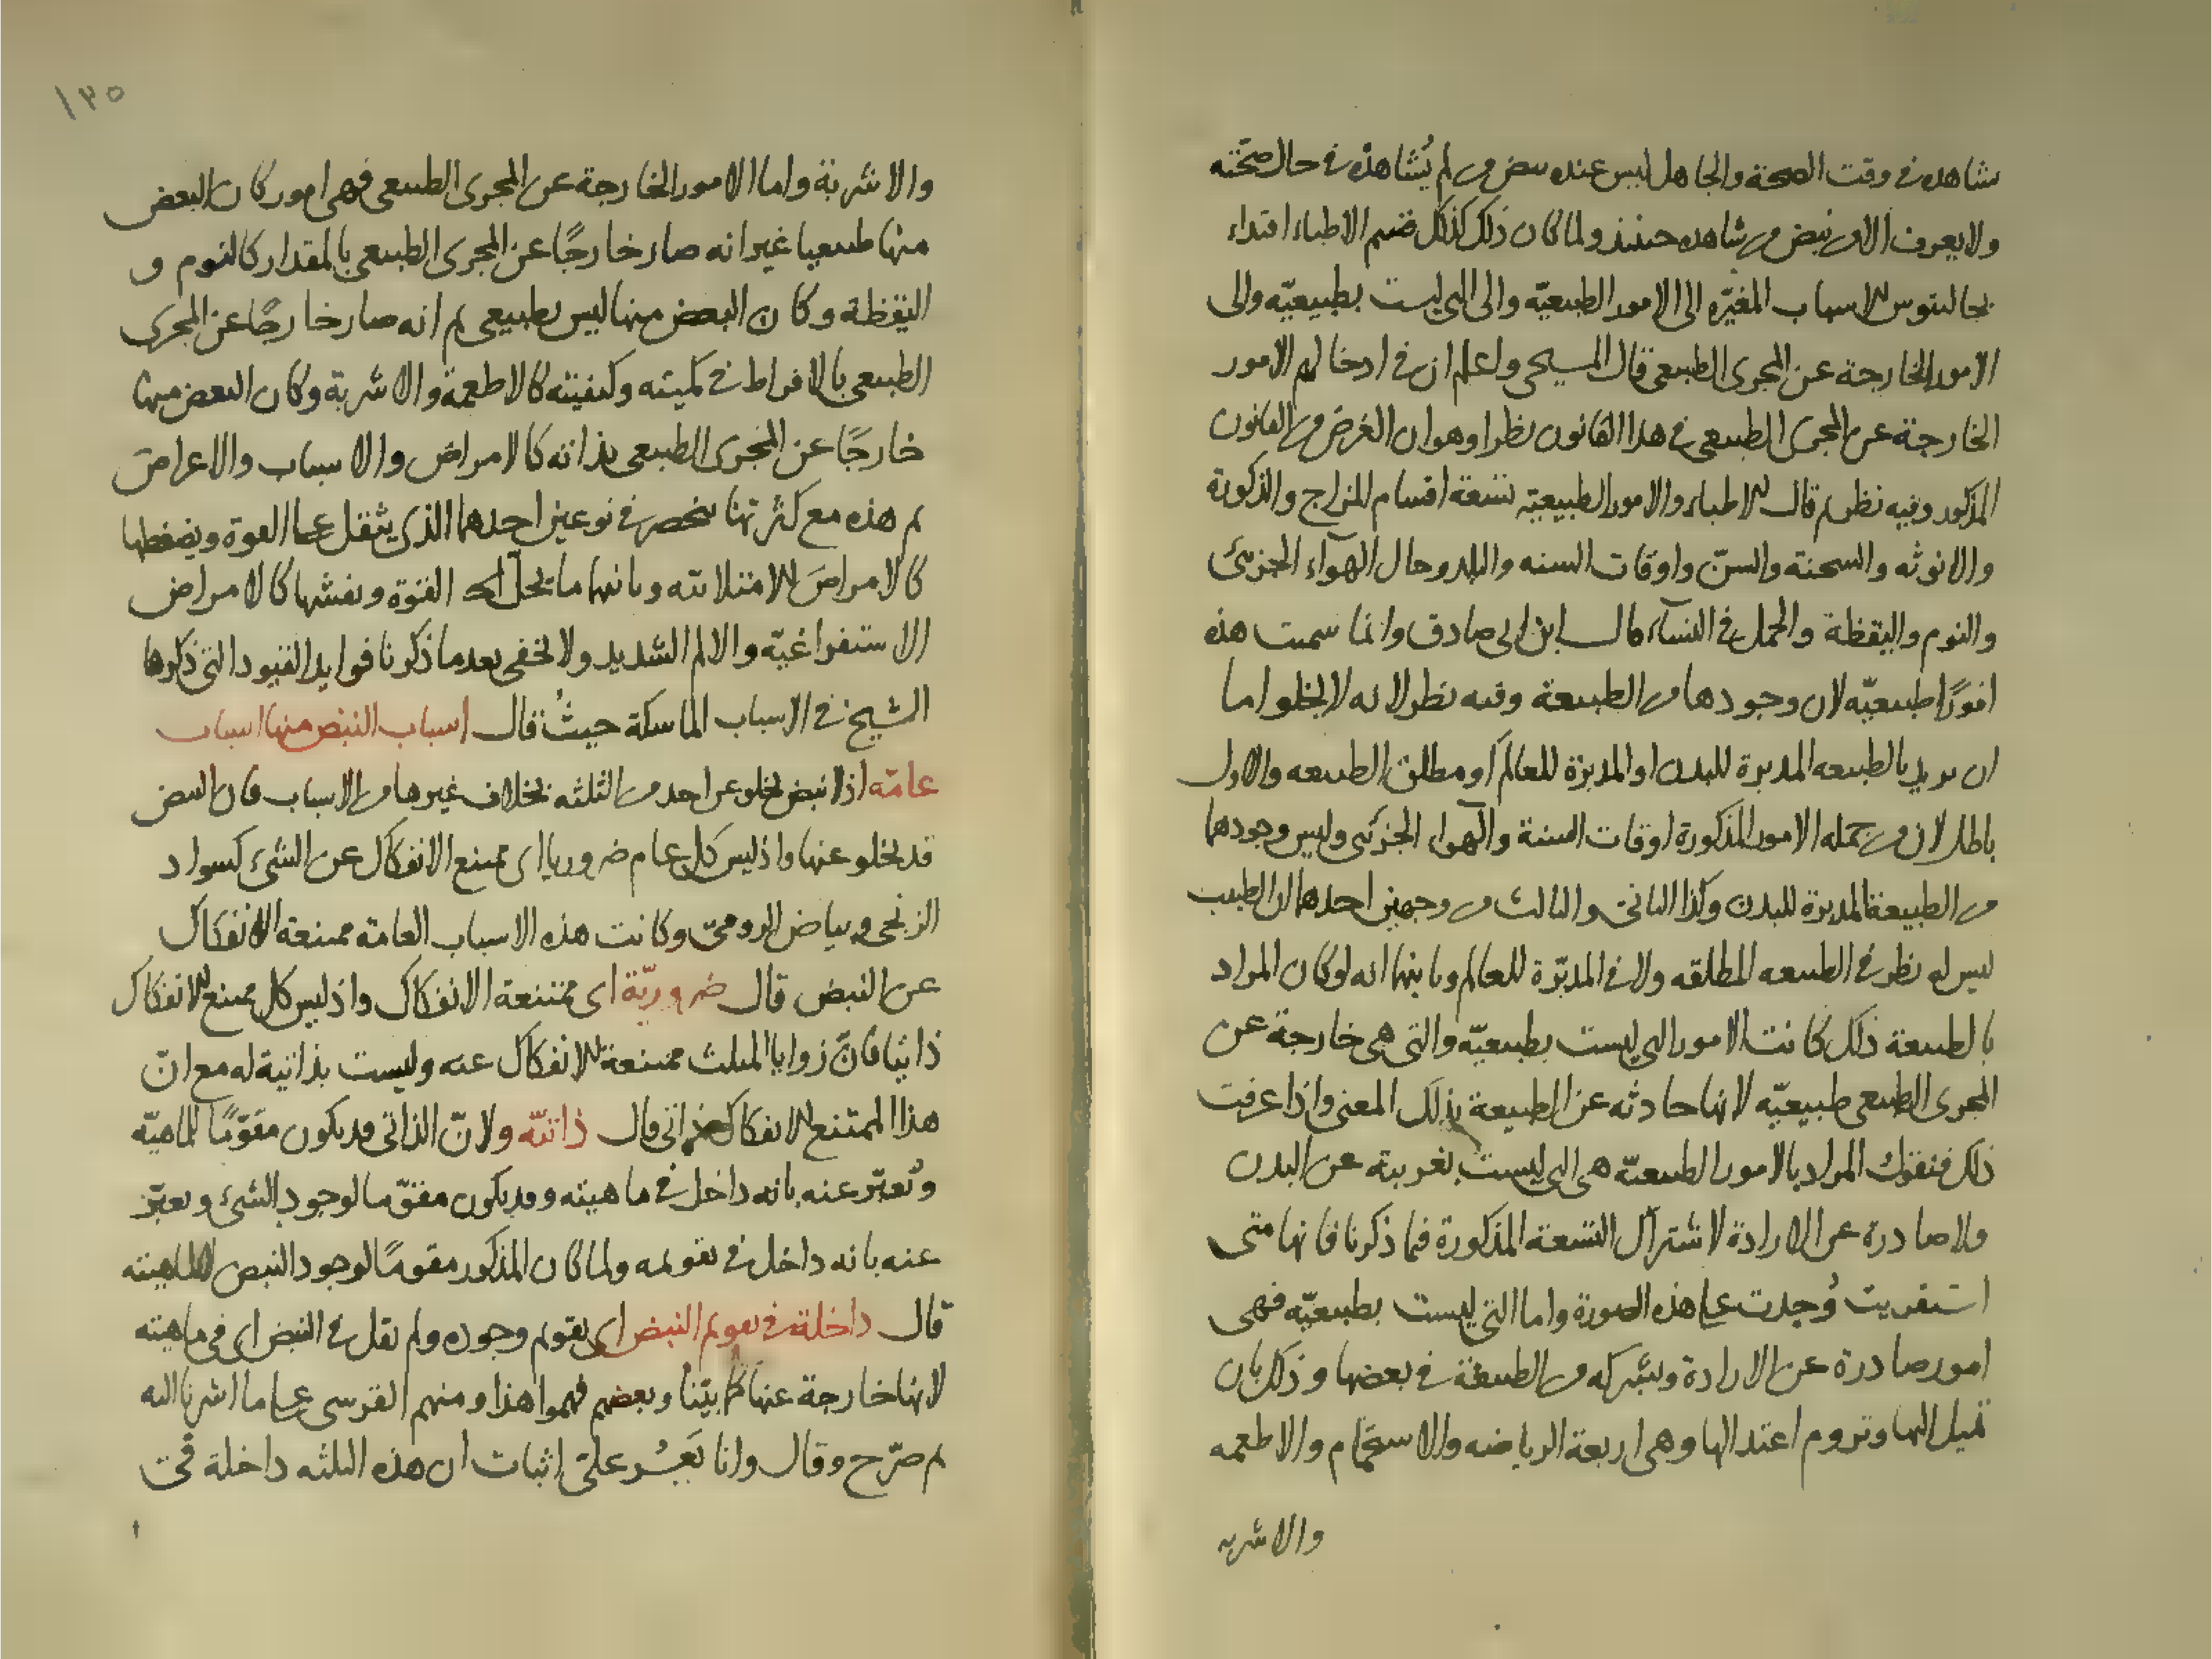 شاهده في وقت الصحة والجاهل ليس عنده نبض من لم يُشاهده في حال صحّته
ولا يعرف الا من نبض من شاهده حينئذ ولما كان ذلك كذلك قسم الاطباء اقتداء
بجالينوس الاسباب المغيّره الى الامور الطبيعيّة والى التي ليست بطبيعيّه والى
الامور الخارجة عن المجرى الطبيعي قال المسيحي واعلم ان في ادخالهم الامور
الخارجة عن المجرى الطبيعي في هذا القانون نظرا وهو ان الغرض من القانون
المذكور وفيه نظر ثم قال الاطباء والامور الطبيعيّة تسعة اقسام المزاج والذكورة
والانوثه والسحنة والسنّ واوقات السنه والبلد وحال الهوآء الجزئى
والنوم واليقظة والحمل في النسآء قال ابن ابي صادق وانما سميت هذه
امورًا طبيعيّه لان وجودها من الطبيعة وفيه نظر لانه لا يخلو اما
ان يريد بالطبيعه المدبرة للبدن او المدبرة للعالم او مطلق الطبيعه والاول
باطل لان من جمله الامور المذكورة اوقات السنة والهوآء الجزئى وليس وجودها
من الطبيعة المدبرة للبدن وكذا الثانى والثالث من وجهين احدهما ان الطبيب
ليس له نظر في الطبيعه المطلقه ولا في المدبّرة للعالم وثانيهما انه لو كان المراد
بالطبيعة ذلك كانت الامور التي ليست بطبيعيّه والتي هي خارجة عن
المجرى الطبيعي طبيعيّه لانها حادثه عن الطبيعة بذلك المعنى واذا عرفت
ذلك فنقول المراد بالامور الطبيعيّه هي التي ليست بغريبة عن البدن
ولا صادرة عن الارادة لاشتراك التسعة المذكورة فيما ذكرنا فانها متى
استقريت وُجدت على هذه الصورة واما التي ليست بطبيعيّه فهى
امور صادرة عن الارادة وبشركه من الطبيعة في بعضها وذلك بان
تميل اليها وتروم اعتدالها وهي اربعة الرياضه والاستحمام والاطعمه
والاشربه
١٣٥
والاشربة واما الامور الخارجة عن المجرى الطبيعي فهى امور كان البعض
منها طبيعيا غير انه صار خارجًا عن المجرى الطبيعي بالمقدار كالنوم و
اليقظة وكان البعض منها ليس بطبيعي ثم انه صار خارجًا عن المجرى
الطبيعي بالافراط في كميته وكيفيته كالاطعمة والاشربة وكان البعض منها
خارجًا عن المجرى الطبيعي بذاته كالامراض والاسباب والاعراض
ثم هذه مع كثرتها تنحصر في نوعين احدهما الذى يثقل على القوة ويضغطها
كالامراض الامتلائيه وثانيهما ما يحلل القوّة ويفشها كالامراض
الاستفراغيّه والالم الشديد ولا يخفى بعد ما ذكرنا فوايد القيود التي ذكرها
الشيخ في الاسباب الماسكة حيثُ قال اسباب النبض منها اسباب
عامّه اذ لا نبض يخلو عن احد من الثلثه بخلاف غيرها من الاسباب فان النبض
قد يخلو عنها واذ ليس كل عام ضروريا اى ممتنع الانفكاك عن الشىء كسواد
الزنجى وبياض الرومىّ وكانت هذه الاسباب العامة ممتنعة الانفكاك
عن النبض قال ضروريّة اى ممتنعة الانفكاك واذ ليس كل ممتنع الانفكاك
ذاتيا فانّ زوايا المثلث ممتنعة الانفكاك عنه وليست بذاتية له مع انّ
هذا الممتنع الانفكاك ذاتى قال ذاتيّه ولانّ الذاتى قد يكون مقوّمًا للماهيّه
ويُعبّر عنه بانه داخل في ماهيته وقد يكون مقوّما لوجود الشىء ويعبّر
عنه بانه داخل في تقويمه ولما كان المذكور مقومًا لوجود النبض لا لماهيته
قال داخلة في تقويم النبض اى تقويم وجوده ولم يقل في النبض اى في ماهيته
لانها خارجة عنها كما بيّنا وبعضهم فهموا هذا ومنهم القرشى على ما اشرنا اليه
ثم صرّح وقال وانا يَعْسُر علىّ اثبات ان هذه الثلثه داخلة في